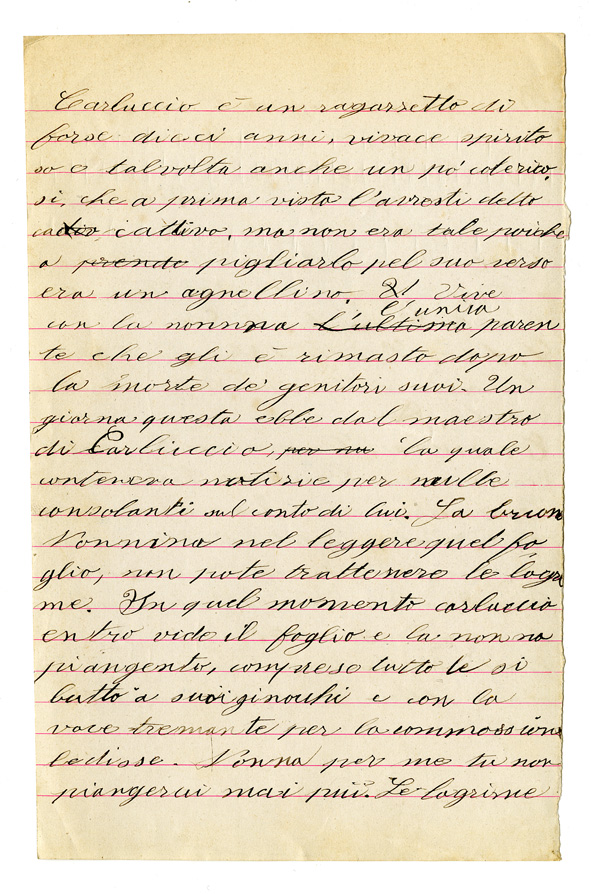 Carluccio è un ragazzetto di
forse dieci anni, vivace spirito
so e talvolta anche un pó colerico.
si, che a prima vista l'avresti detto
cattivo, ma non era tale poiche
a prendo pigliarlo pel suo verso
era un agnellino. Vive
l'unica
con la nonnna l'ultima paren
te che gli è rimasto dopo
la morte de' genitori suoi. Un
giorna questa ebbe dal maestro
di Carluccio, la quale
conteneva notizie per nulla
consolanti sul conto di lui. La buon
Nonnina nel leggere quel fo
glio, non pote trattenere le lagri
me. In quel momento carluccio
entro vide il foglio e la nonna
piangento, comprese tutto le si
butto a suoi ginocchi e con la
voce tremante per la commossione
le disse. Nonna per me tu non
piangerai mai più. Le lagrime